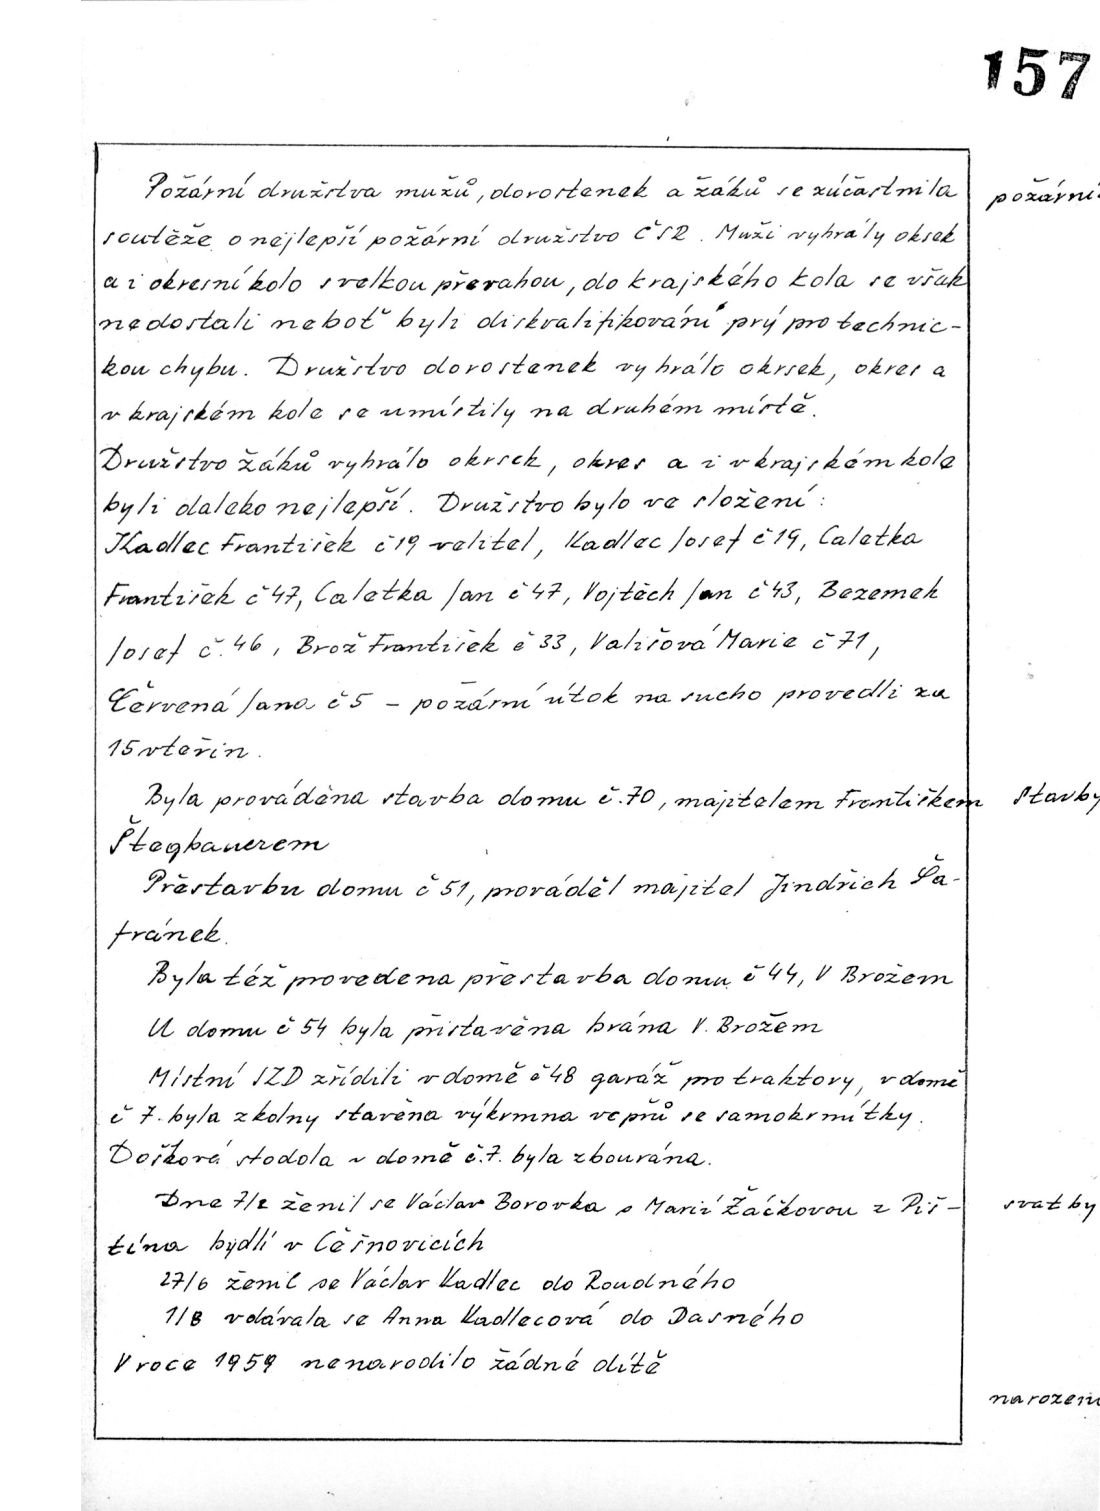 157
Požární družstva mužů, dorostenek a žáků se zúčastnila
požární
soutěže o nejlepší požární družstvo ČSR. Muži vyhrály oksek
a i okresní kolo s velkou převahou, do krajského kola se však
nedostali neboť byli diskvalifikování prý pro technic-
kou chybu. Družstvo dorostenek vyhrálo okrsek, okres a
v krajském kole se umístily na druhém místě.
Družstvo žáků vyhrálo okrsek, okres a i v krajském kole
byli daleko nejlepší. Družstvo bylo ve složení:
Kadlec František č 19 velitel, Kadlec Josef č 19, Caletka
František č 47, Caletka Jan č 47, Vojtěch Jan č 43, Bezemek
Josef č. 46, Brož František č 33, Vališová Marie č 71,
Červená Jana č 5 – požární útok na sucho provedli za
15 vteřin.
Byla prováděna stavba domu č. 70, majitelem Františkem
Stavby
Štegbauerem
Přestavbu domu č 51, prováděl majitel Jindřich Ša-
fránek.
Byla též provedena přestavba domu č 44, V Brožem
U domu č 54 byla přistavěna brána V. Brožem
Místní JZD zřídili v domě č 48 garáž pro traktory, v domě
č 7. byla z kolny stavěna výkrmna vepřů se samokrmítky.
Došková stodola v domě č. 7. byla zbourána.
Dne 7/2 ženil se Václav Borovka s Marií Žáčkovou z Piš-
svatby
tína bydlí v Češnovicích
27/6 ženil se Václav Kadlec do Roudného
1/8 vdávala se Anna Kadlecová do Dasného
V roce 1959 nenarodilo žádné dítě
narození